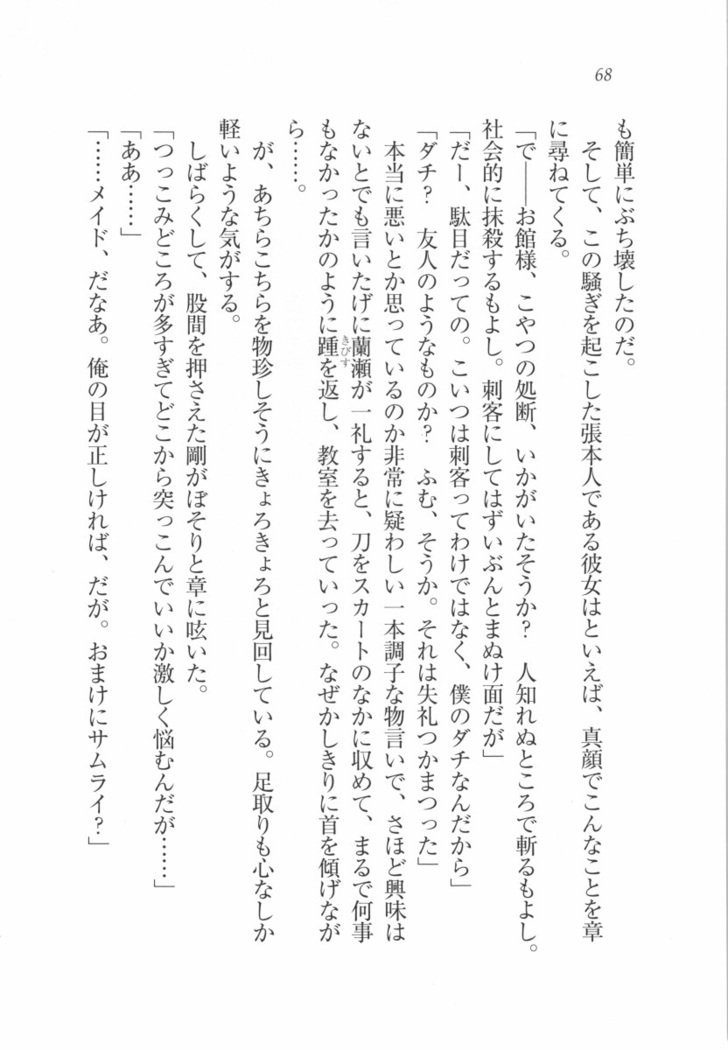 68
も簡単にぶち壊したのだ。
　そして、この騒ぎを起こした張本人である彼女はといえば、真顔でこんなことを章
に尋ねてくる。
「で――お館様、こやつの処断、いかがいたそうか？　人知れぬところで斬るもよし。
社会的に抹殺するもよし。刺客にしてはずいぶんとまぬけ面だが」
「だー、駄目だっての。こいつは刺客ってわけではなく、僕のダチなんだから」
「ダチ？　友人のようなものか？　ふむ、そうか。それは失礼つかまつった」
　本当に悪いとか思っているのか非常に疑わしい一本調子な物言いで、さほど興味は
ないとでも言いたげに蘭瀬が一礼すると、刀をスカートのなかに収めて、まるで何事
もなかったかのように踵きびすを返し、教室を去っていった。なぜかしきりに首を傾げなが
ら……。
　が、あちらこちらを物珍しそうにきょろきょろと見回している。足取りも心なしか
軽いような気がする。
　しばらくして、股間を押さえた剛がぼそりと章に呟いた。
「つっこみどころが多すぎてどこから突っこんでいいか激しく悩むんだが……」
「ああ……」
「……メイド、だなあ。俺の目が正しければ、だが。おまけにサムライ？」